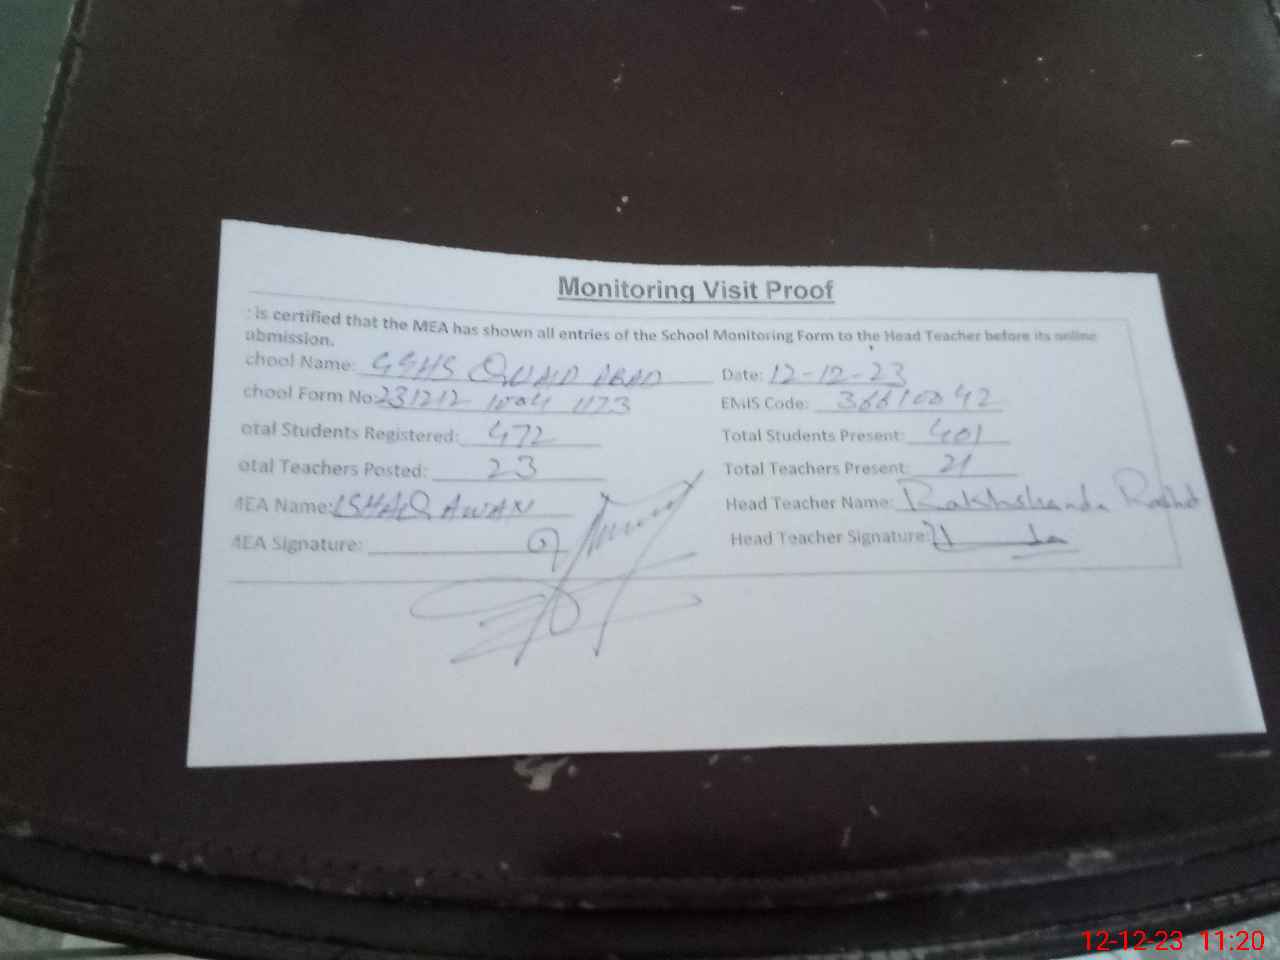 Monitoring Visit Proof
: is certified that the MEA has shown all entries of the School Monitoring Form to the Head Teacher before its online
ubmission.
chool Name: GGHS QUAID ABAD Date: 12-12-23
chool Form No: 231212 1004 1173 EMIS Code: 36610042
otal Students Registered: 472 Total Students Present: 401
otal Teachers Posted: 23 Total Teachers Present: 21
MEA Name: ISHAQ AWAN Head Teacher Name: Rakhshanda Rashid
MEA Signature: Head Teacher Signature:
12-12-23 11:20